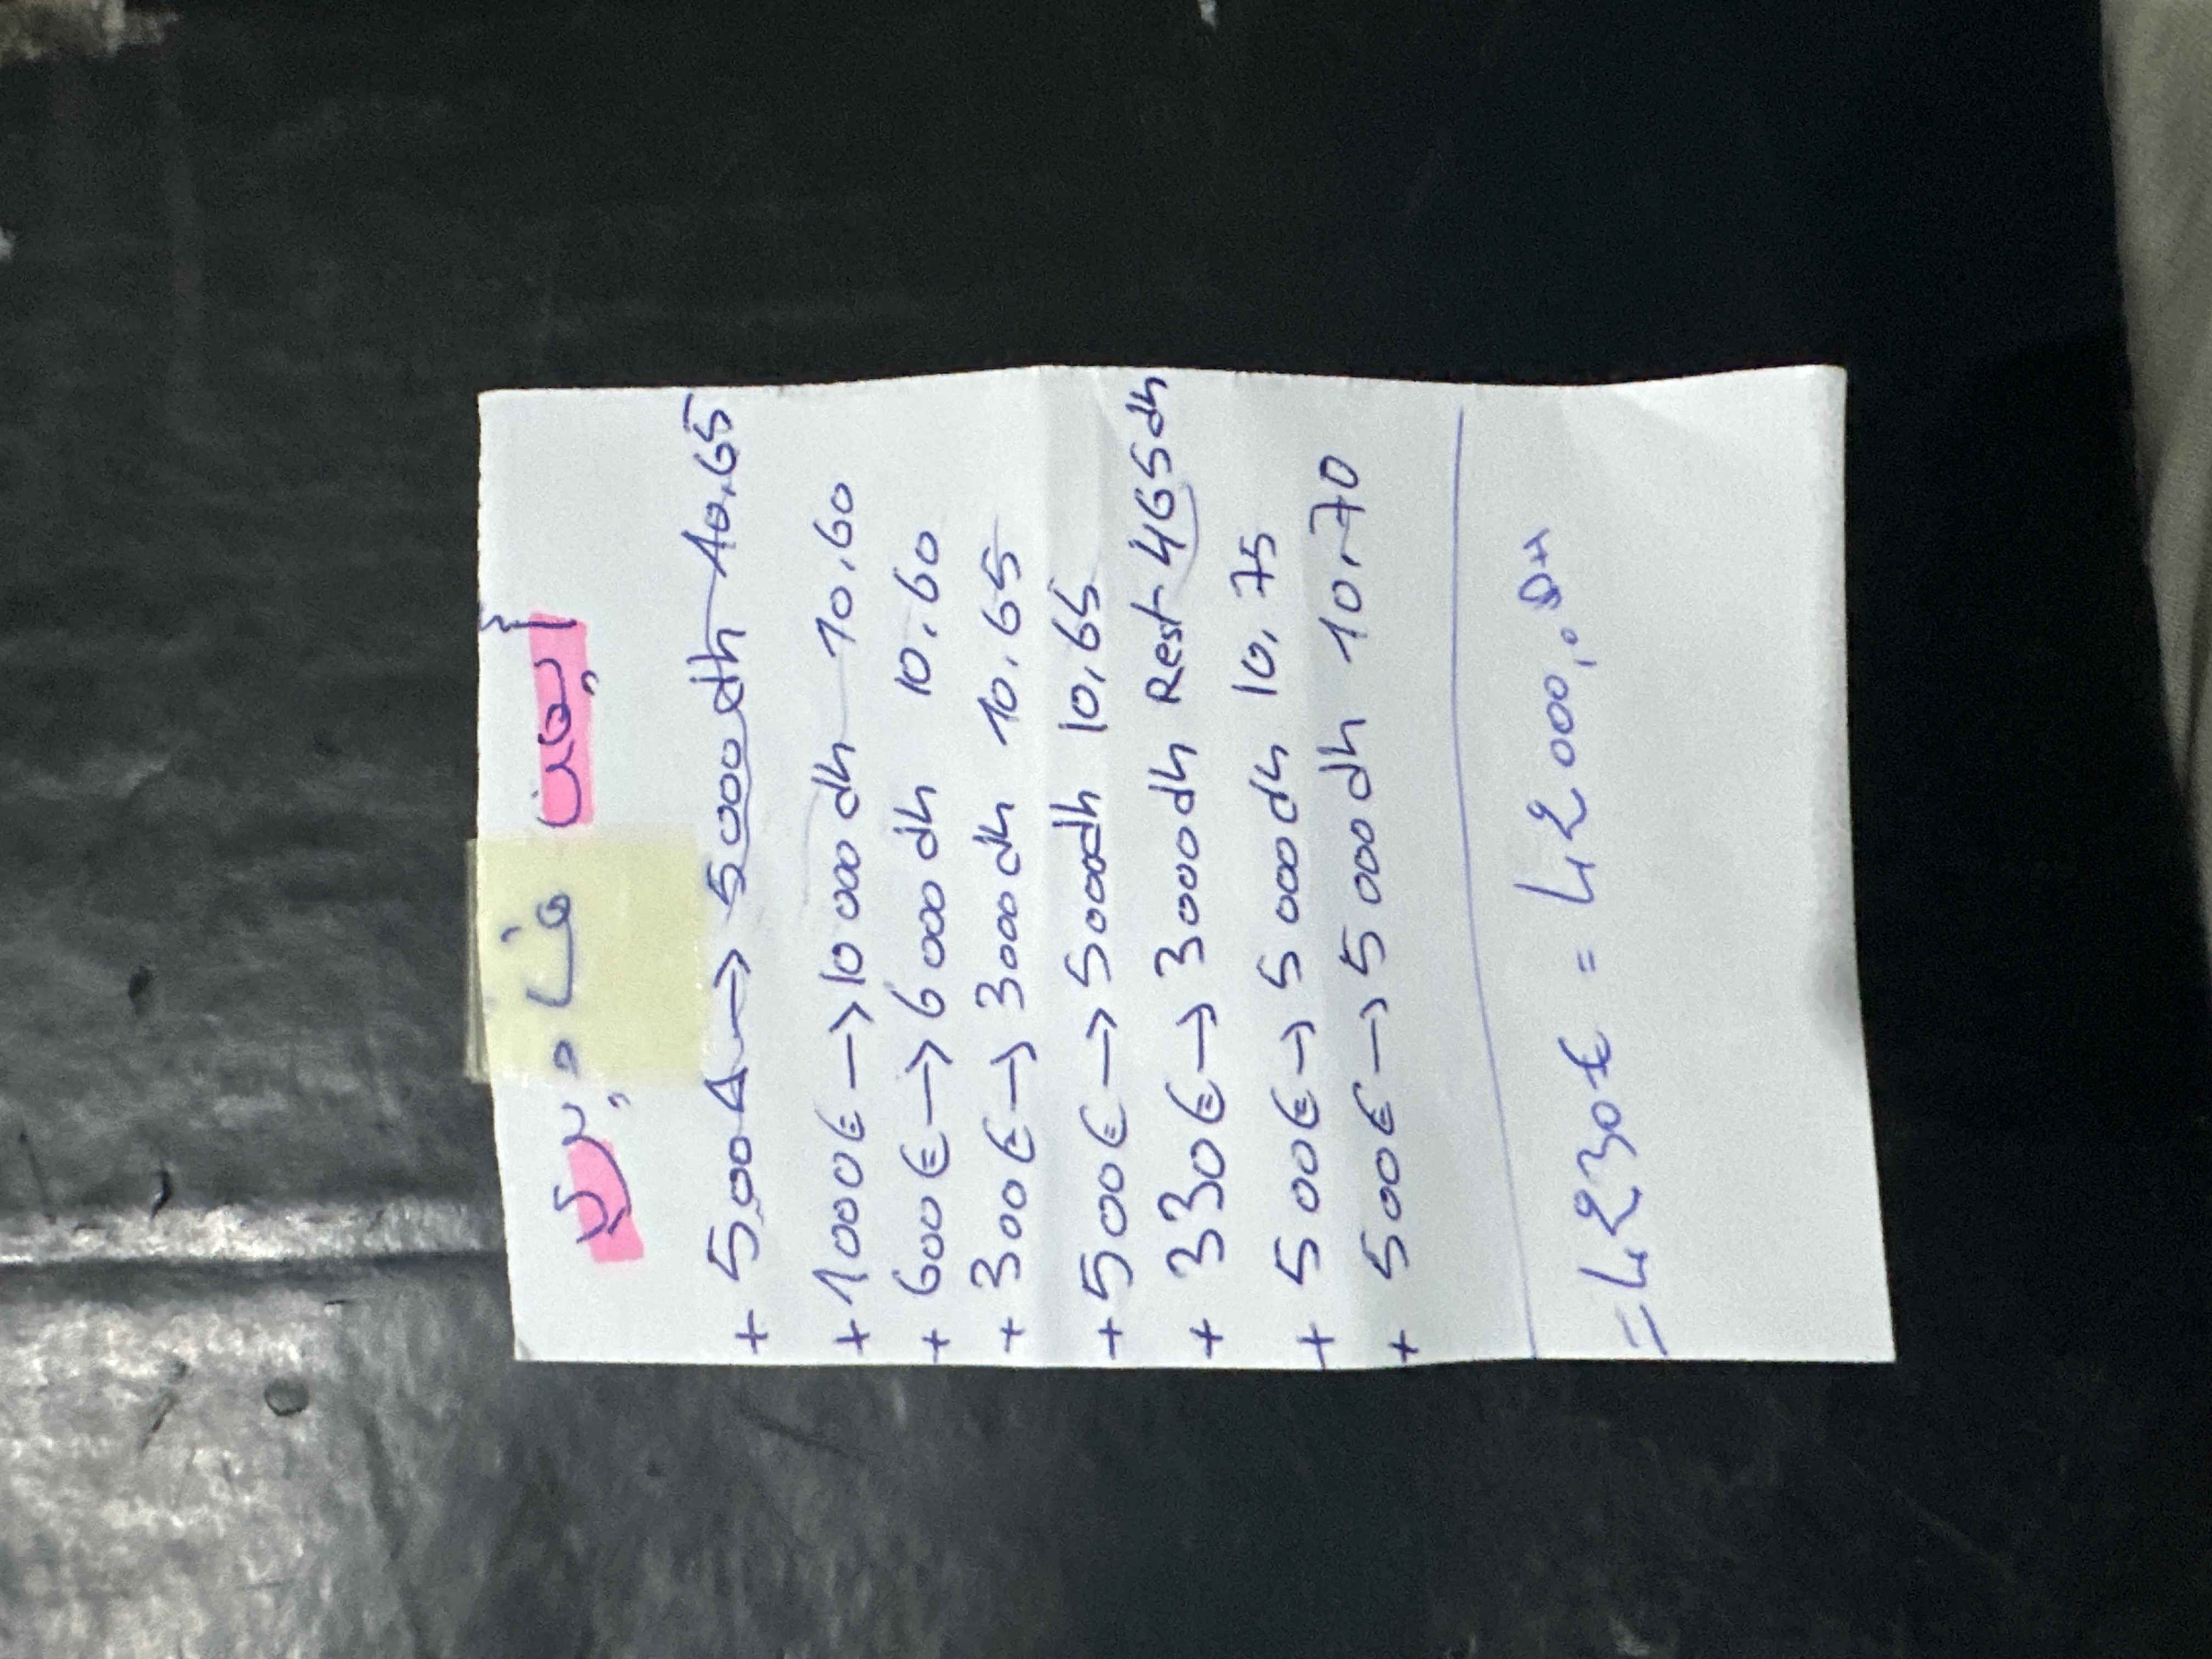 أيمن قاديري
+ 500 → 5000 dh 10.65
+ 1000€ → 10 000 dh 10.60
+ 600€ → 6 000 dh 10.60
+ 300€ → 3000 dh 10.65
+ 500€ → 5000dh 10,65
+ 330€ → 3000dh Rest 465dh
+ 500€ → 5 000dh 10,75
+ 500€ → 5 000dh 10.70
= 4230€ = 42 000,. DH